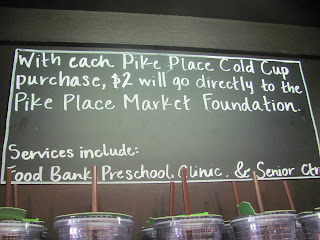 With each Pike Place Cold Cup
purchase, $2 will go directly to the
Pike Place Market Foundation.
Services include:
Food Bank, Preschool, Clinic, & Senior Ctr